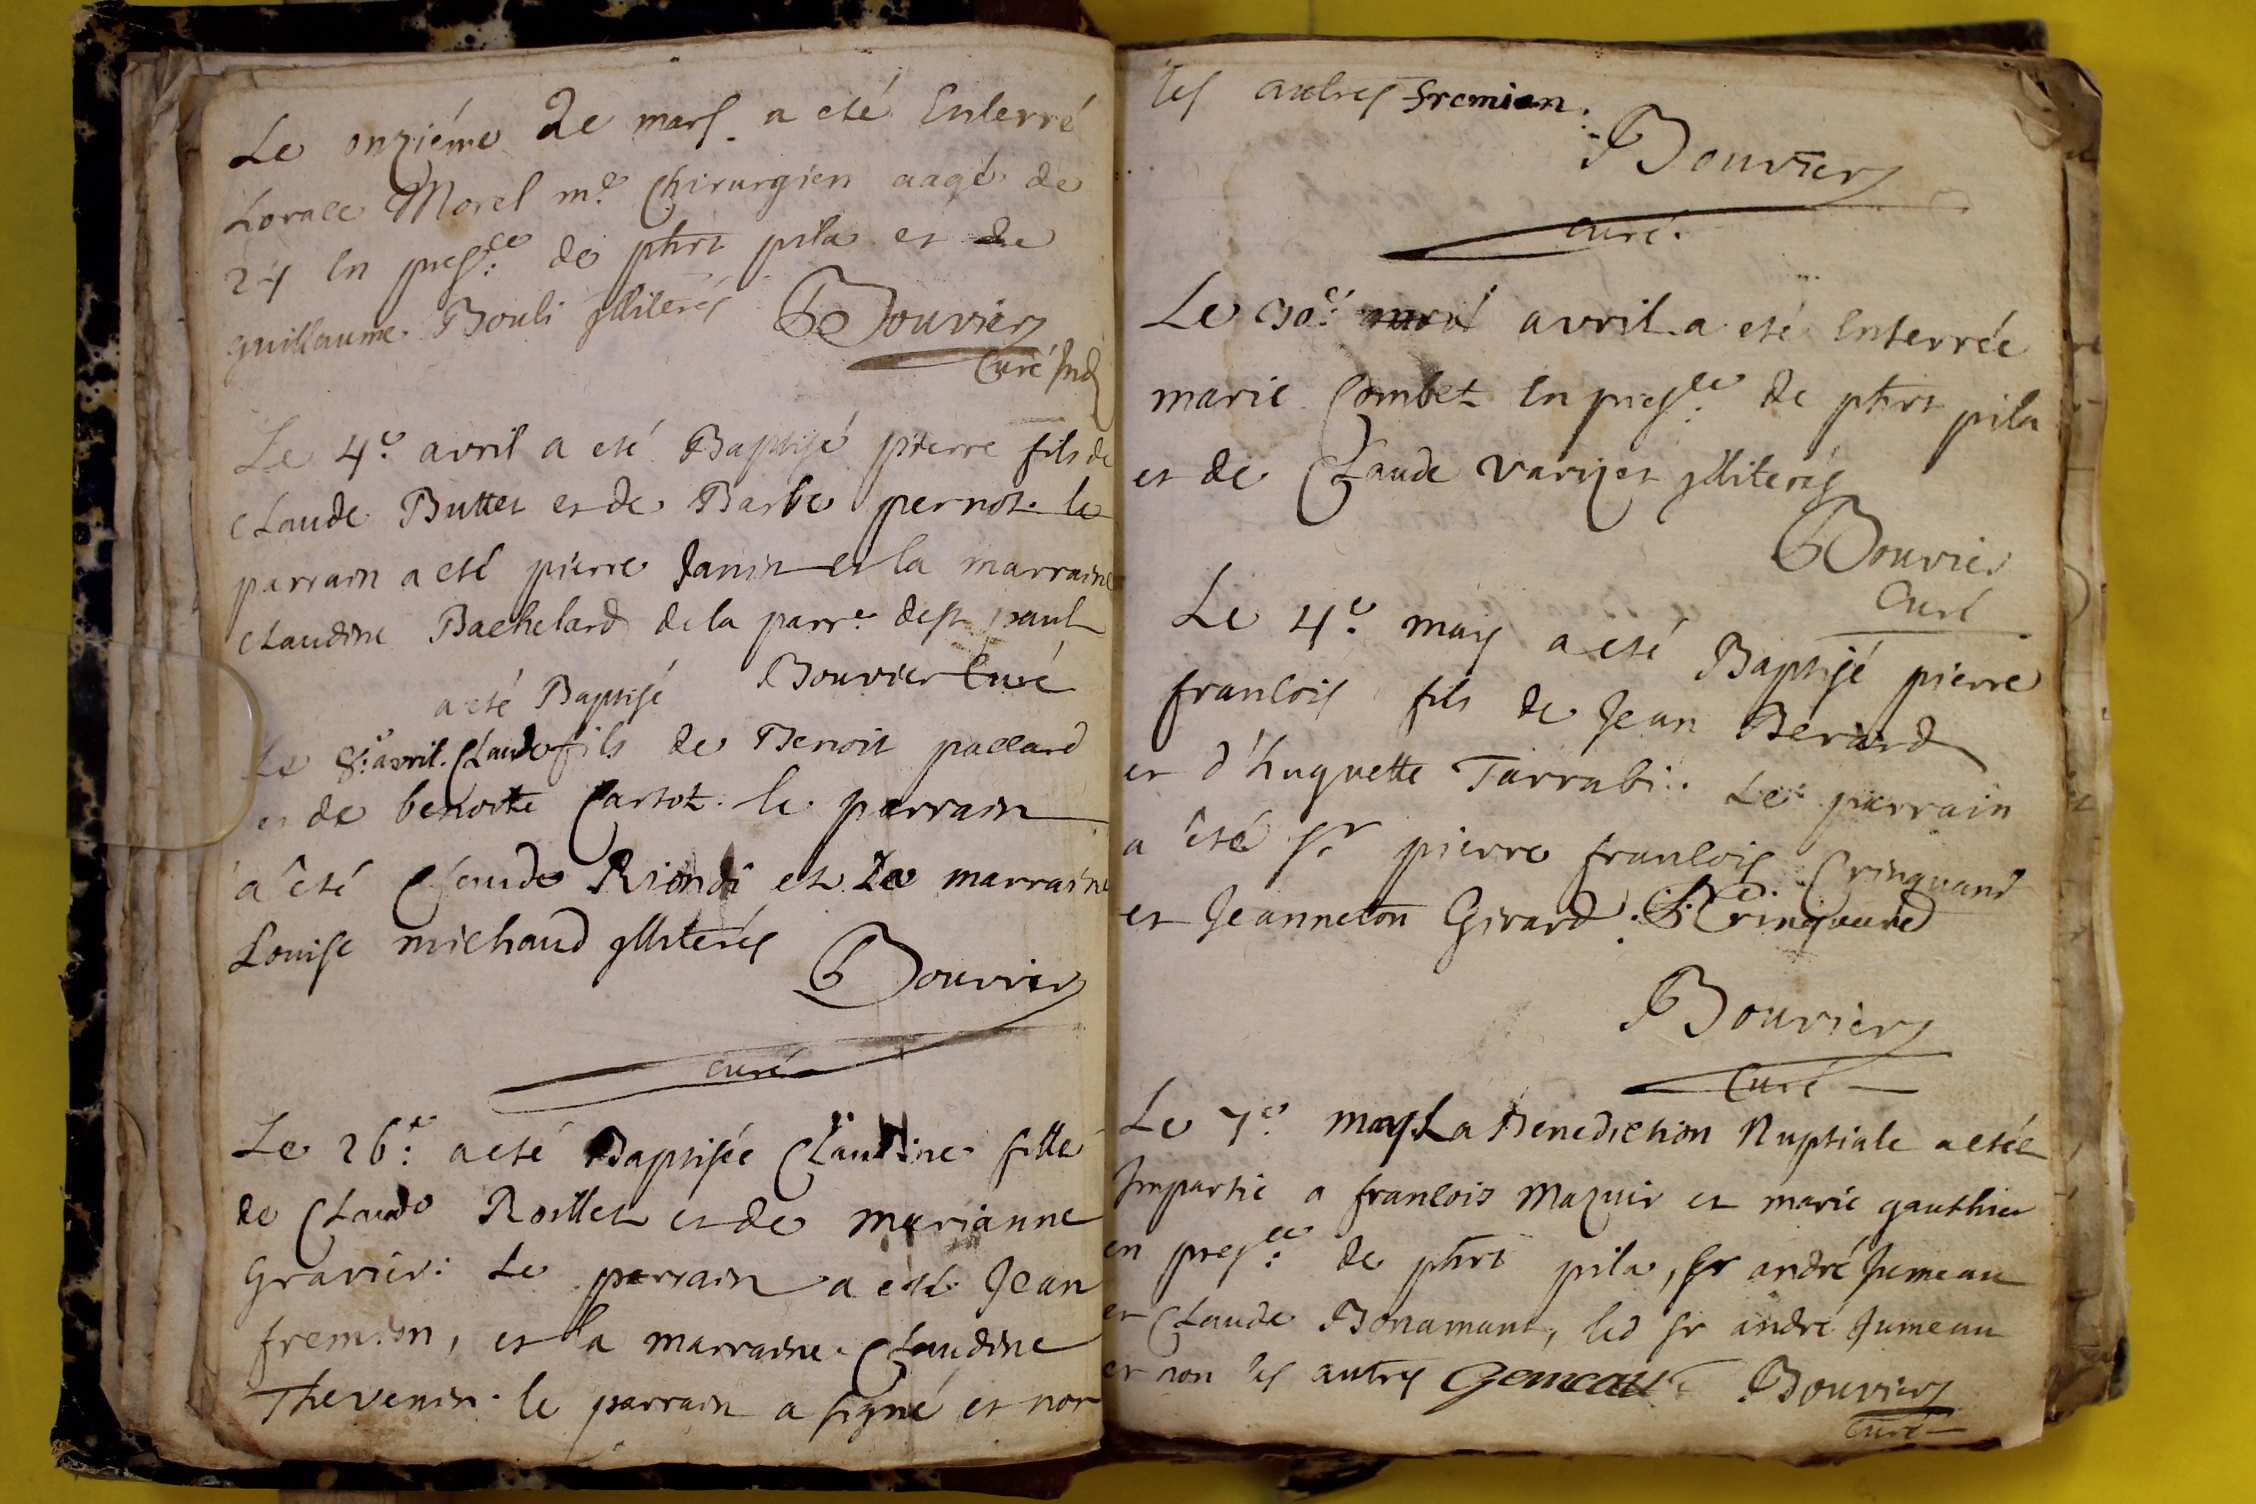 Le onziéme De mars a eté Enterré
Lorale Morel me. Chirurgien aagé de
24 en presce: de phrt pila et de
guillaume Bouli jlliterés Bouvier
Curé
Le 4e. avril a eté Baptisé pierre fils de
Claude Buttet et de Barbe pernot le
parrain a eté pierre Janin et la marraine
Claudine Bachelard de la parre de st paul
a eté Baptisé Bouvier Curé
Le 8e: avril. Claude fils de Benoit paccard
et de benoite Cartot. le parrain
a êté Claude Riondi et La marraine
Louise michaud jlliterés Bouvier
curé
Le 26e: a eté Baptisée Claudine fille
de Claude Roillet et de marianne
Gravier: Le parrain a eté Jean
fremion, et la marraine Claudine
Thevenin. le parrain a signé et non
les autres fremion.
Bouvier
curé.
Le 30e: avril a eté Enterrée
marie Combet En presce: de phrt pila
et de Claude variset jlliterés
Bouvier
Curé
Le 4e. may a eté Baptisé pierre
francois fils de Jean Berard
et d'huguette Tarrabi. Le parrain
a êté sr pierre francois Cringuand
et Jeanneton Girard. Cringuand
Bouvier
Curé
Le 7e. may La Benediction Nuptiale a etée
Jmpartie a francois Mazuir et marie gauthier
en presce: de phrt pila, sr andré Jumeau
et Claude Bonamant, led sr andré Jumeau
et non les autres Gemeau Bouvier
curé